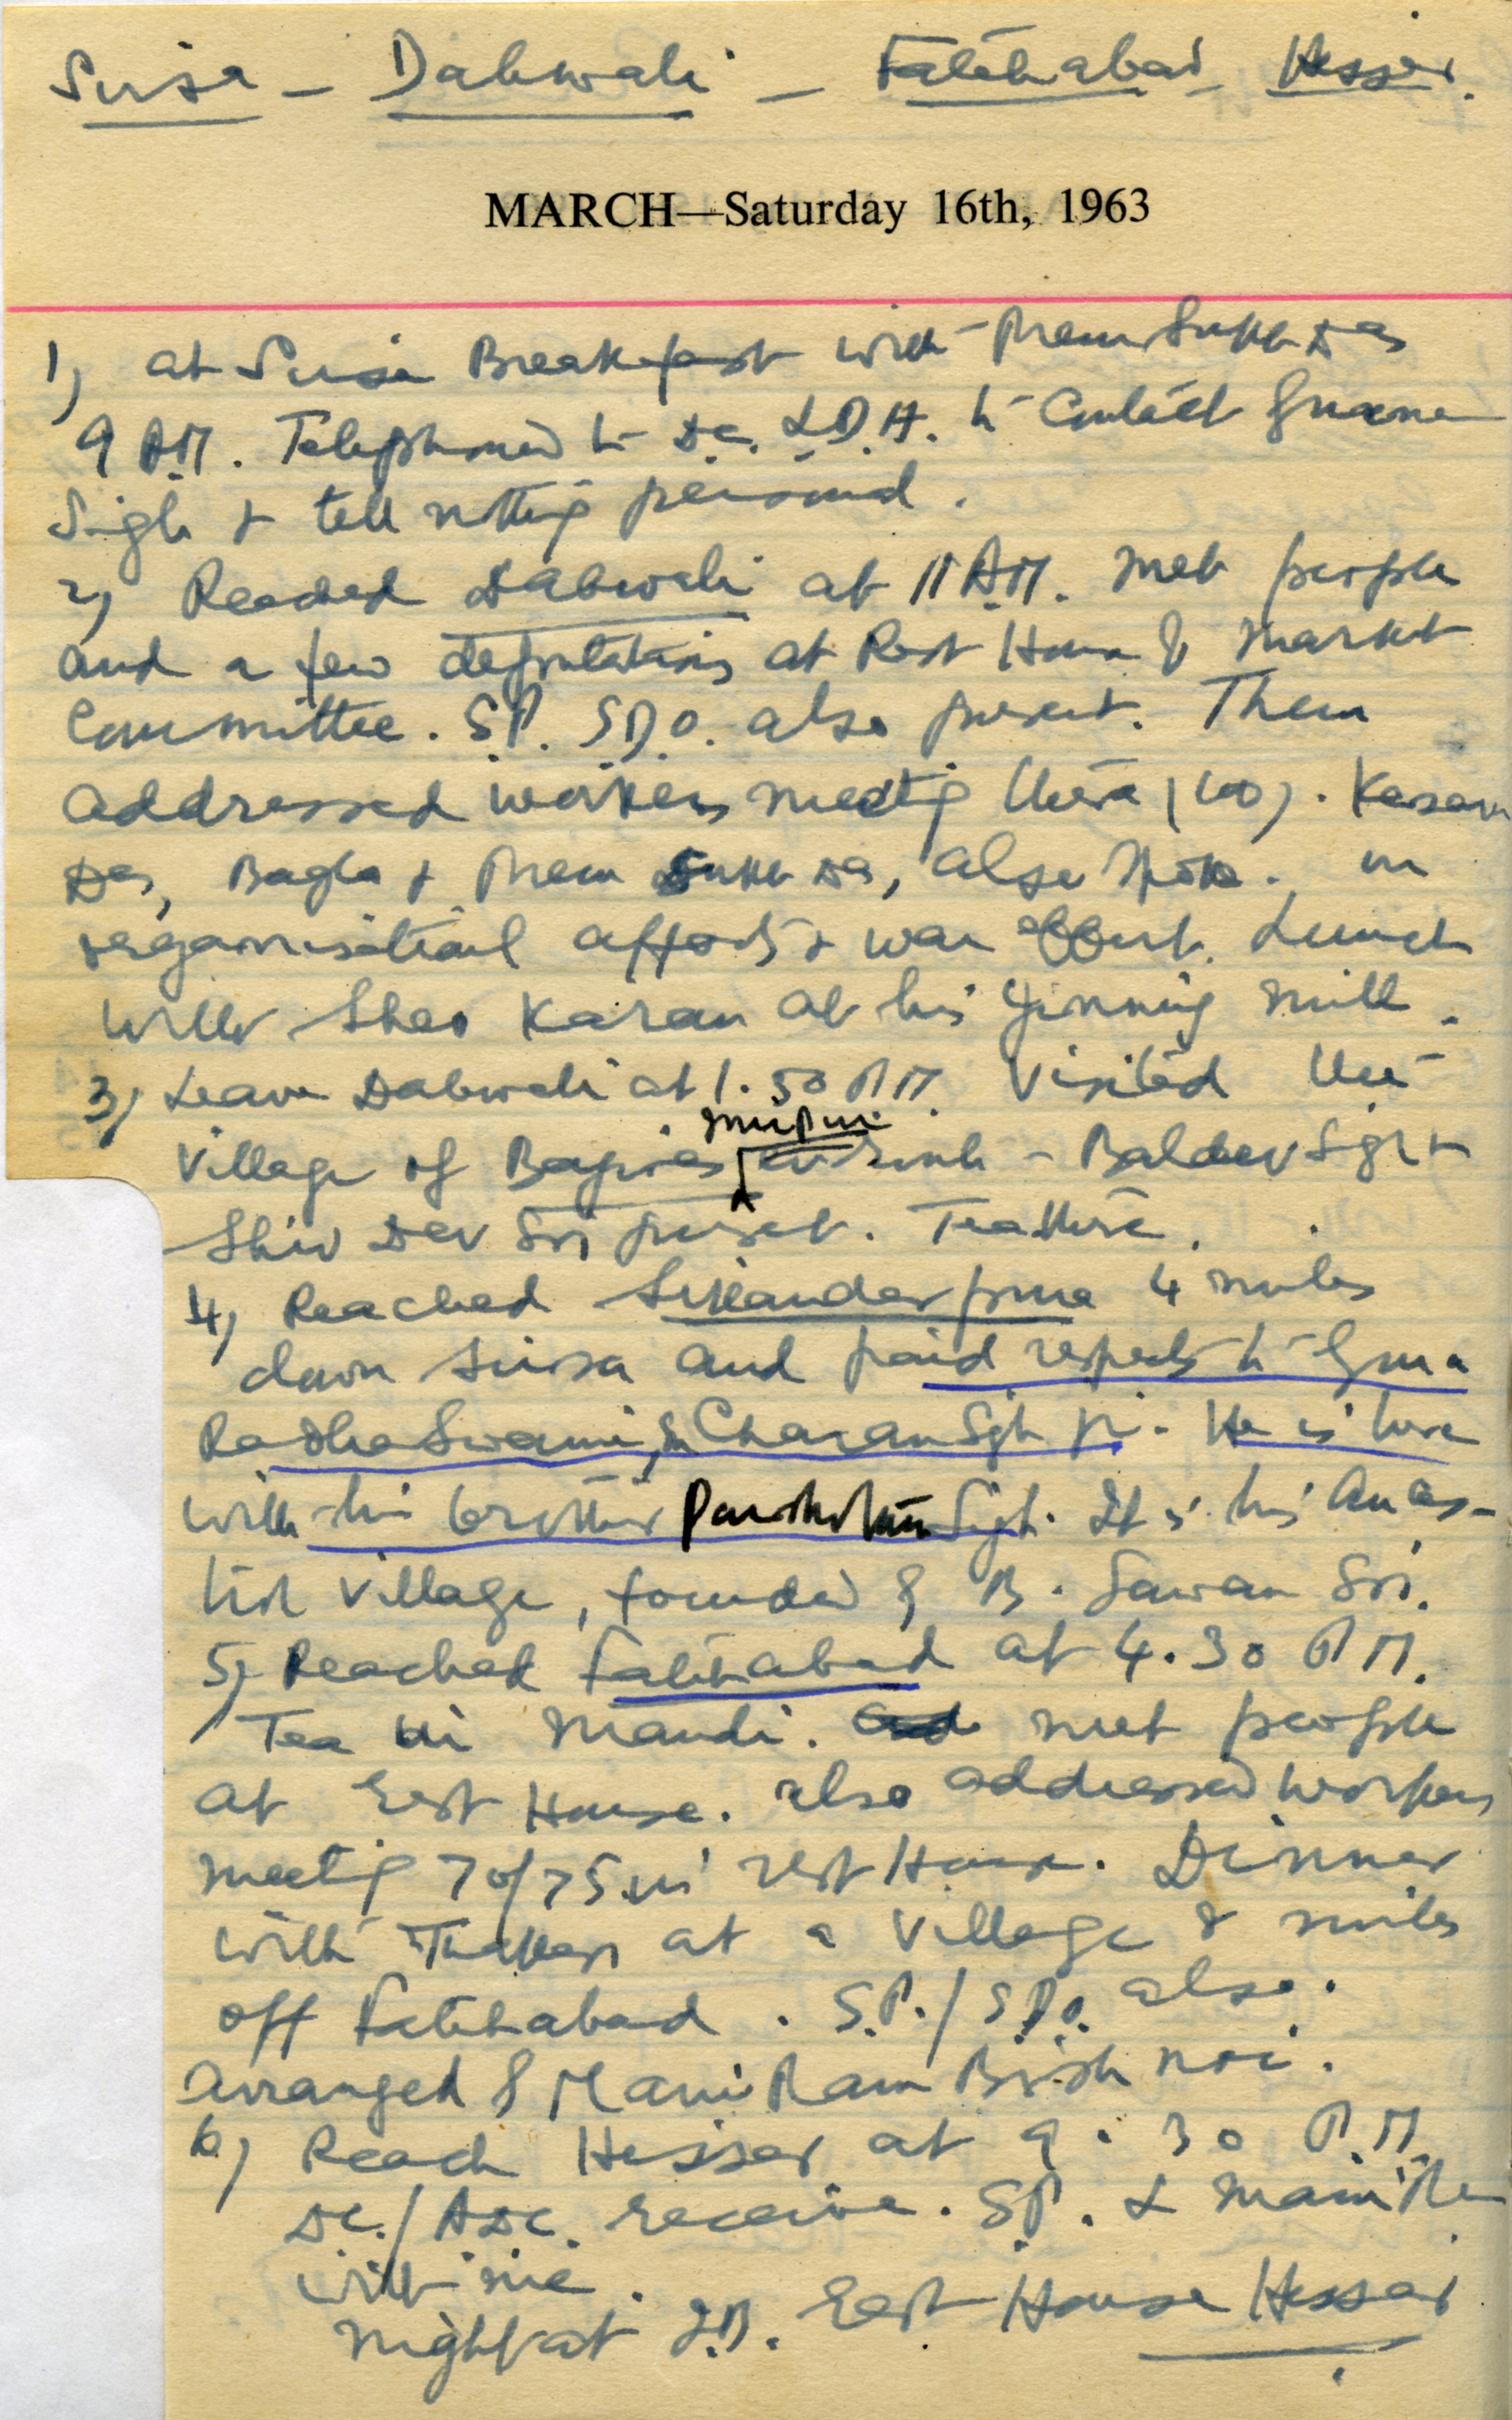 Sirsa - Dabwali - Fatehabad - Hissar.
MARCH—Saturday 16th, 1963
1) at Sirsa Breakfast with Prem Sukh Das
9 A.M. Telephoned to D.C. LDH. to Contact
Singh & tell nothing personal.
2) Reached Dabwali at 11 A.M. met people
and a few deputations at Rest House & Market
Committee. S.P. S.D.O. also present. Then
addressed workers meeting there (100). Kesara
Das, Bagla & Prem Sukh Das, also spoke. on
organisational & war effort. Lunch
with Sheo Karan at his Ginning Mill.
3) Leave Dabwali at 1.50 P.M. Visited the
village of - Baldev Sgh &
Shiv Dev Sgh present. Tea there.
4) Reached Sikanderpura 4 miles
down Sirsa and paid respects to Guru
Radha Swami, S. Charan Sgh ji. He is here
with his brother Parshotam Sigh. It is his Ances-
tral village, founded by B. Sawan Sgh.
5) Reached Fatehabad at 4.30 P.M.
Tea in Mandi. met people
at Rest House. Also addressed workers
meeting 70/75 in rest House. Dinner
with at a village 8 miles
off Fatehabad. S.P./S.D.O. also.
Arranged by Mani Ram Bishnoi.
6) Reach Hissar at 9.30 P.M.
D.C./A.D.C. receive. S.P. & Mani Ram
with me.
Night at Rest House Hissar.